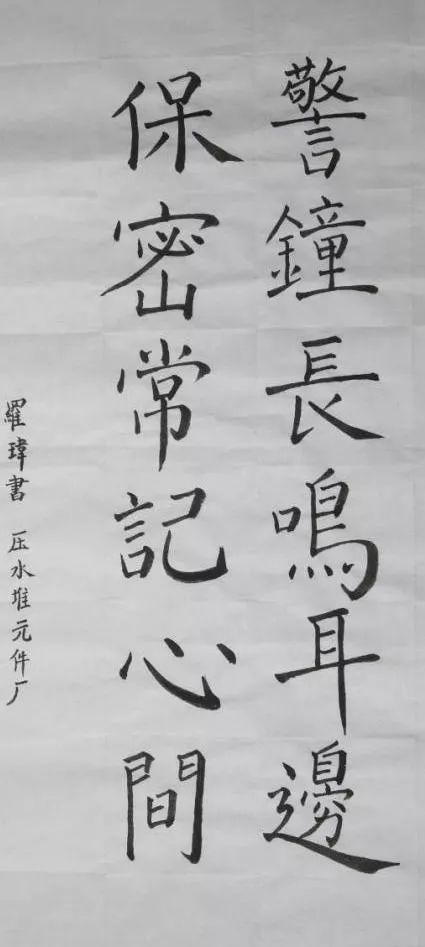 警鐘長鳴耳邊
保密常記心間
羅瑋書 压水堆元件厂